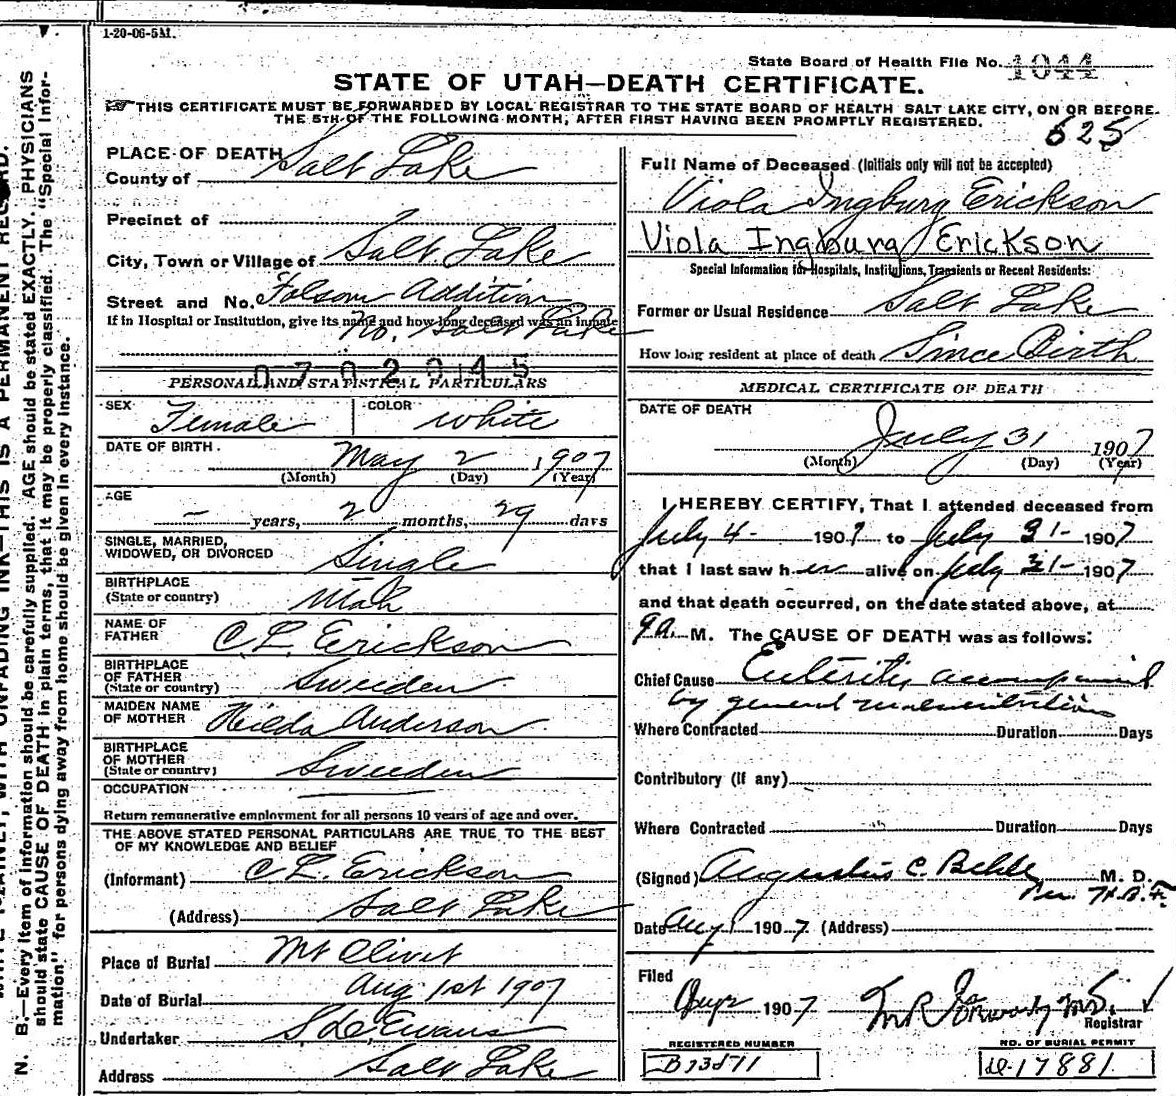 1-20-06-5M.
State Board of Health File No. 1044
STATE OF UTAH—DEATH CERTIFICATE.
THIS CERTIFICATE MUST BE FORWARDED BY LOCAL REGISTRAR TO THE STATE BOARD OF HEALTH SALT LAKE CITY, ON OR BEFORE
THE 5TH OF THE FOLLOWING MONTH, AFTER FIRST HAVING BEEN PROMPTLY REGISTERED.
625
PLACE OF DEATH
County of Salt Lake
Precinct of 2
City, Town or Village of Salt Lake
Street and No. Folsom Addition
If in Hospital or Institution, give its name and how long deceased was an inmate
No. Salt Lake
0702045
PERSONAL AND STATISTICAL PARTICULARS
SEX Female COLOR White
DATE OF BIRTH. May 2, 1907
(Month) (Day) (Year)
AGE
— years, 2 months, 29 days
SINGLE, MARRIED,
WIDOWED, OR DIVORCED Single
BIRTHPLACE
(State or country) Utah
NAME OF
FATHER C. L. Erickson
BIRTHPLACE
OF FATHER
(State or country) Sweeden
MAIDEN NAME
OF MOTHER Hilda Anderson
BIRTHPLACE
OF MOTHER
(State or country) Sweeden
OCCUPATION
Return remunerative employment for all persons 10 years of age and over.
THE ABOVE STATED PERSONAL PARTICULARS ARE TRUE TO THE BEST
OF MY KNOWLEDGE AND BELIEF
(Informant) C. L. Erickson
(Address) Salt Lake
Place of Burial Mt Olivet
Date of Burial Aug 1st 1907
Undertaker Evans
Address Salt Lake
Full Name of Deceased (Initials only will not be accepted)
Viola Ingburg Erickson
Viola Ingburg Erickson
Special Information for Hospitals, Institutions, Transients or Recent Residents:
Former or Usual Residence Salt Lake
How long resident at place of death Since Birth
MEDICAL CERTIFICATE OF DEATH
DATE OF DEATH
July 31 1907
(Month) (Day) (Year)
I HEREBY CERTIFY, That I attended deceased from
July 4- 1907 to July 31- 1907
that I last saw her alive on July 31- 1907
and that death occurred, on the date stated above, at
9 a. M. The CAUSE OF DEATH was as follows:
Chief Cause Enteritis accompanied
by general
Where Contracted Duration Days
Contributory (if any)
Where Contracted Duration Days
(Signed) Augustus C. Behle M. D.
Date Aug 1 1907 (Address)
Filed
1907
Registrar
REGISTERED NUMBER
B23571
NO. OF BURIAL PERMIT
17881
N. B.—Every item of information should be carefully supplied. AGE should be stated EXACTLY. PHYSICIANS
should state CAUSE OF DEATH in plain terms, that it may be properly classified. The "Special Infor-
mation" for persons dying away from home should be given in every instance.